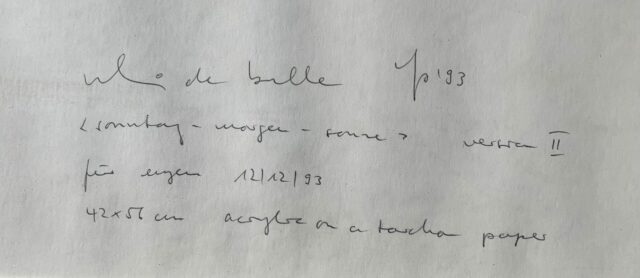 de bulle '93
< sonntag - morgen - sonne > version II
für eugen 12/12/93
42x56 cm acrylic on a torchon paper